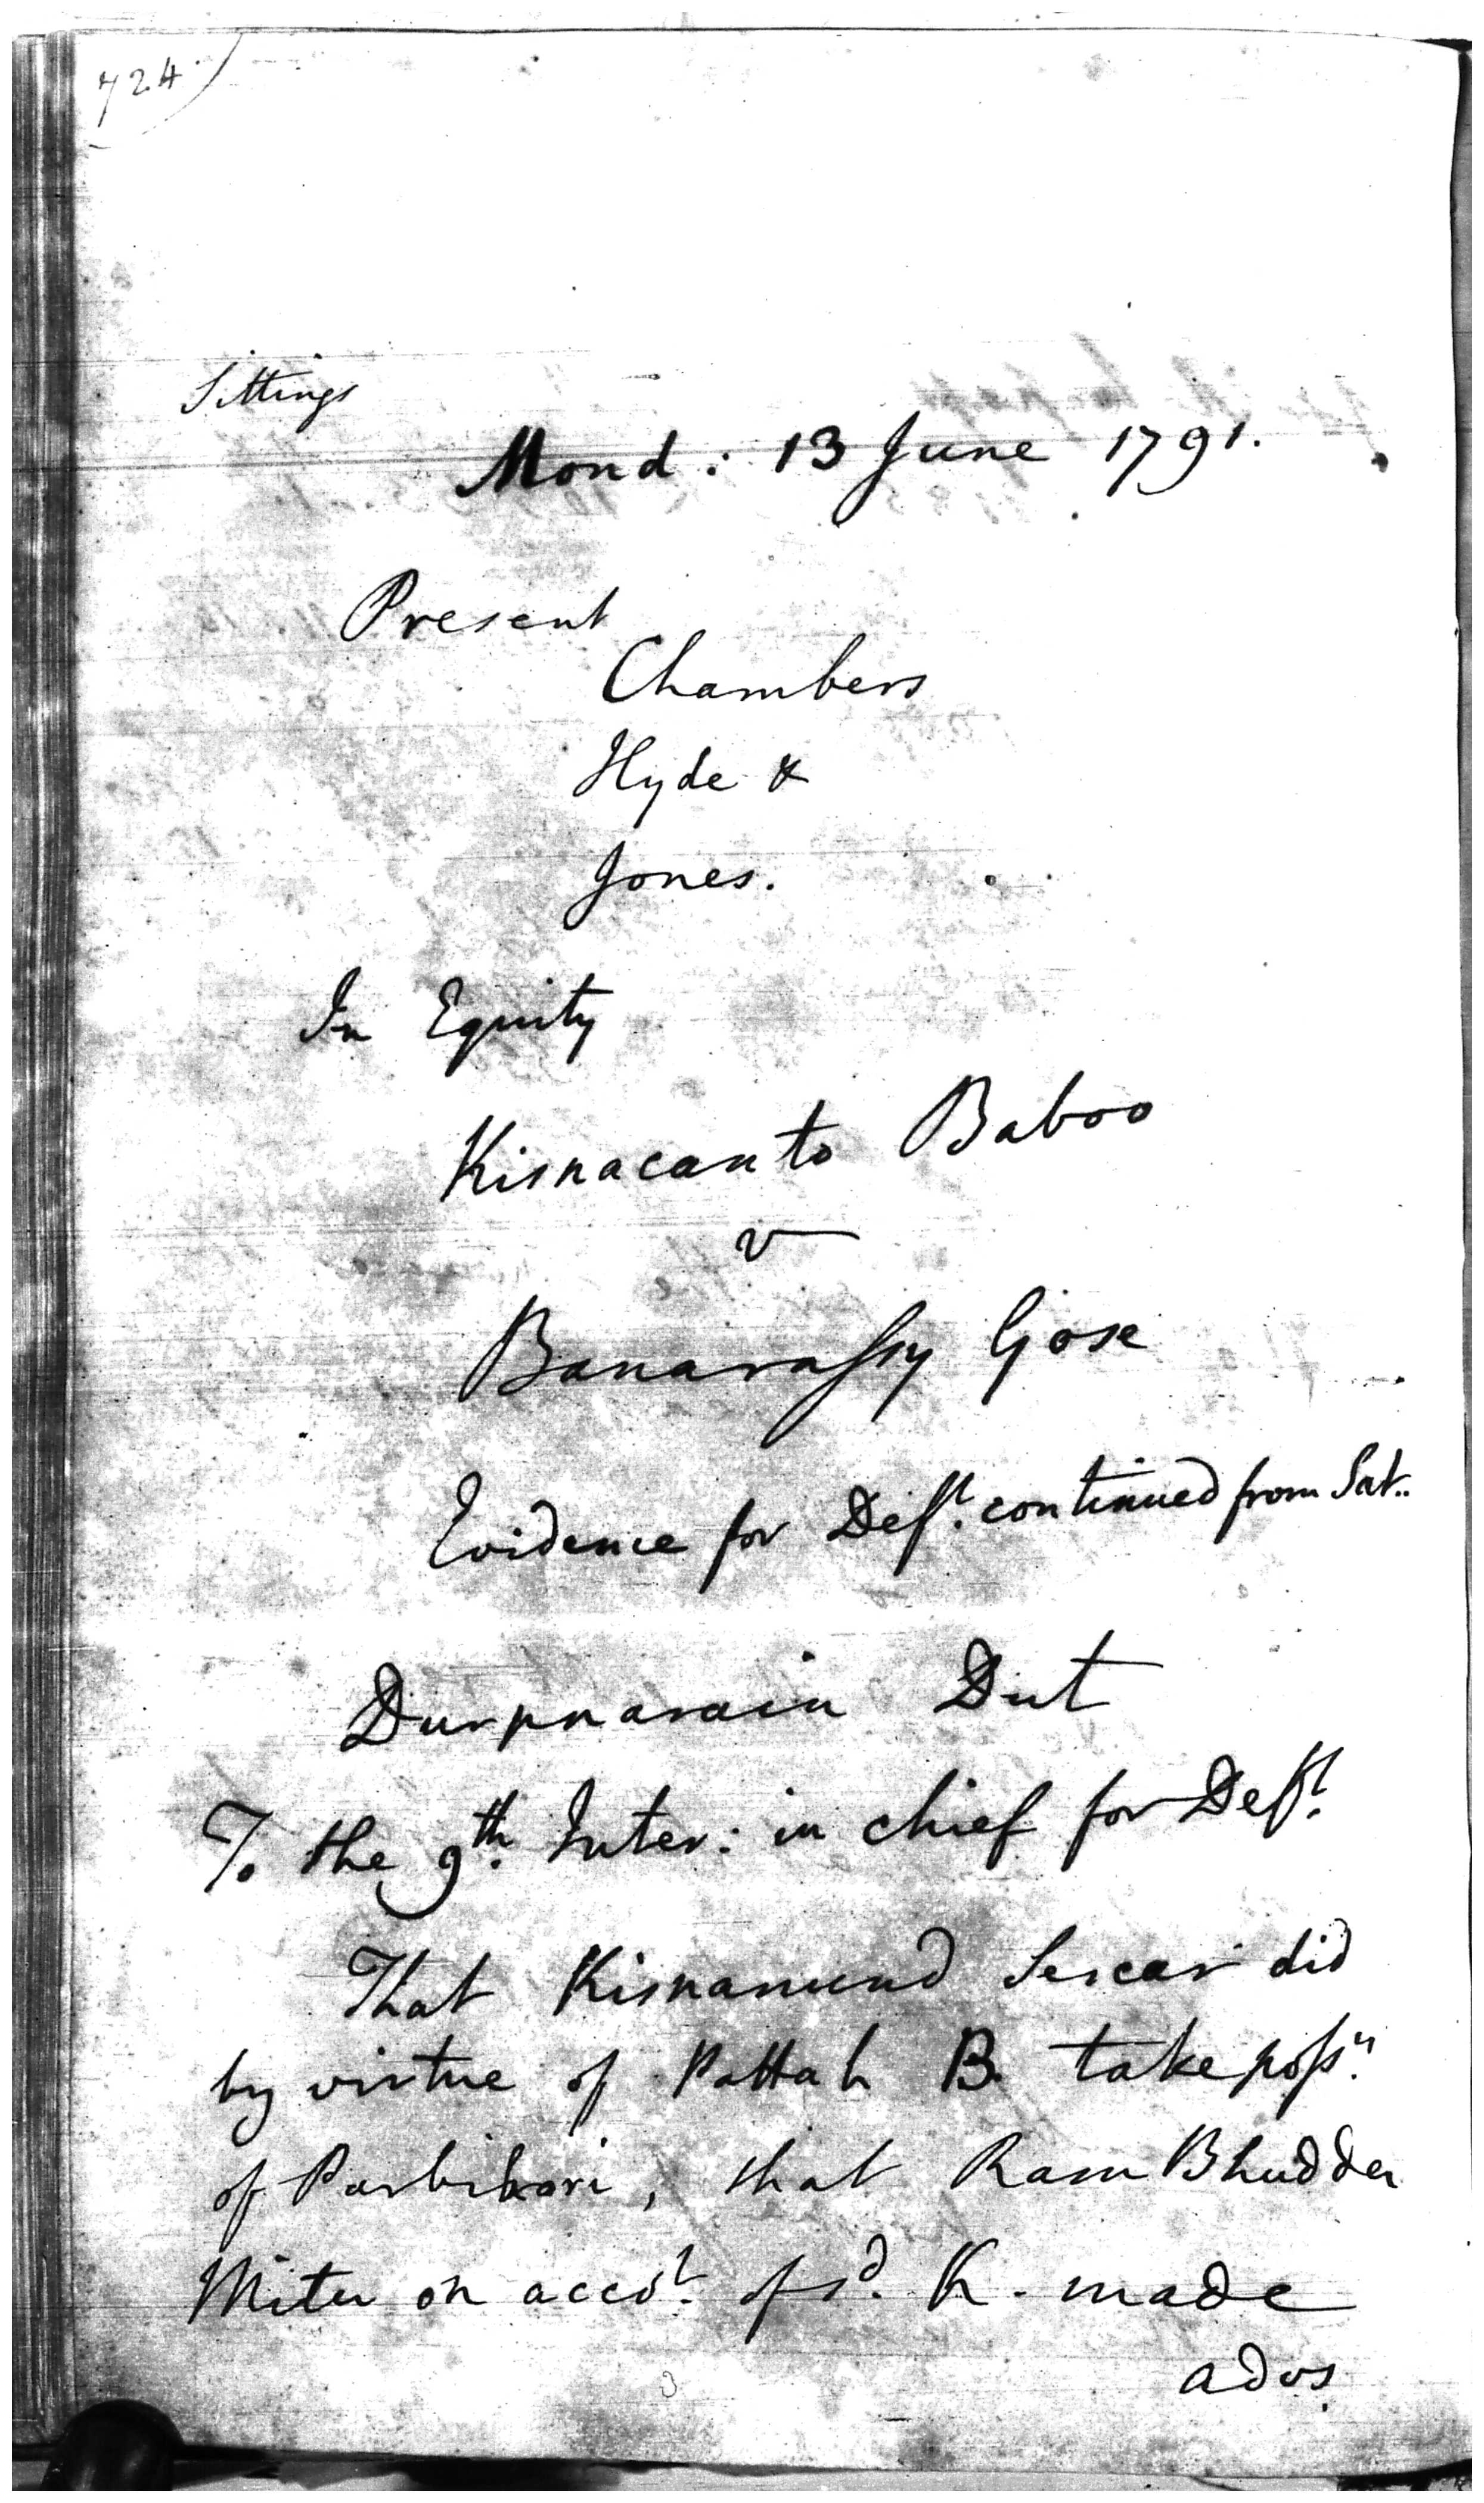 724)
Sittings
Mond: 13 June 1791.
Present
Chambers
Hyde &
Jones.
In Equity
Kisnacanto Baboo
v
Banarassy Gose
Evidence for Deft. continued from Sat..
Durpnarain Dut
To the 9th. Inter: in chief for Deft.
That Kisnanund Sercar did
by virtue of Pottah B. take possn.
of Parbihari, that Ram Bhudder
Miter on accot. of sd. K. made
advs.